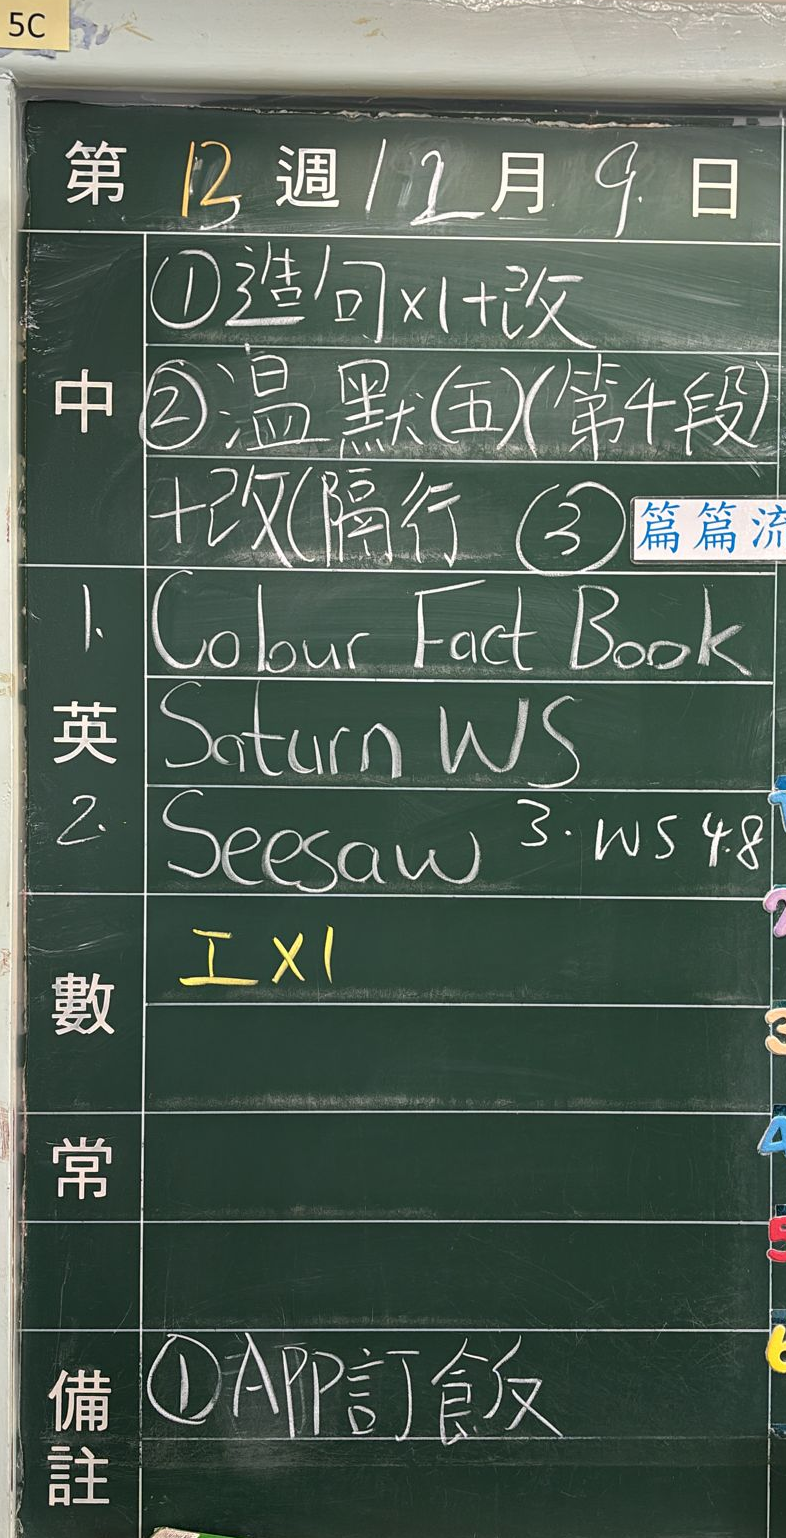 5C
第 13 週 12 月 9 日
中
①造句x1+改
②温默(五)(第4段)
+改(隔行 ③ 篇篇流
英
1. Colour Fact Book
Saturn WS
2. Seesaw 3. WS 4.8
數
工x1
常
備註
①APP訂飯